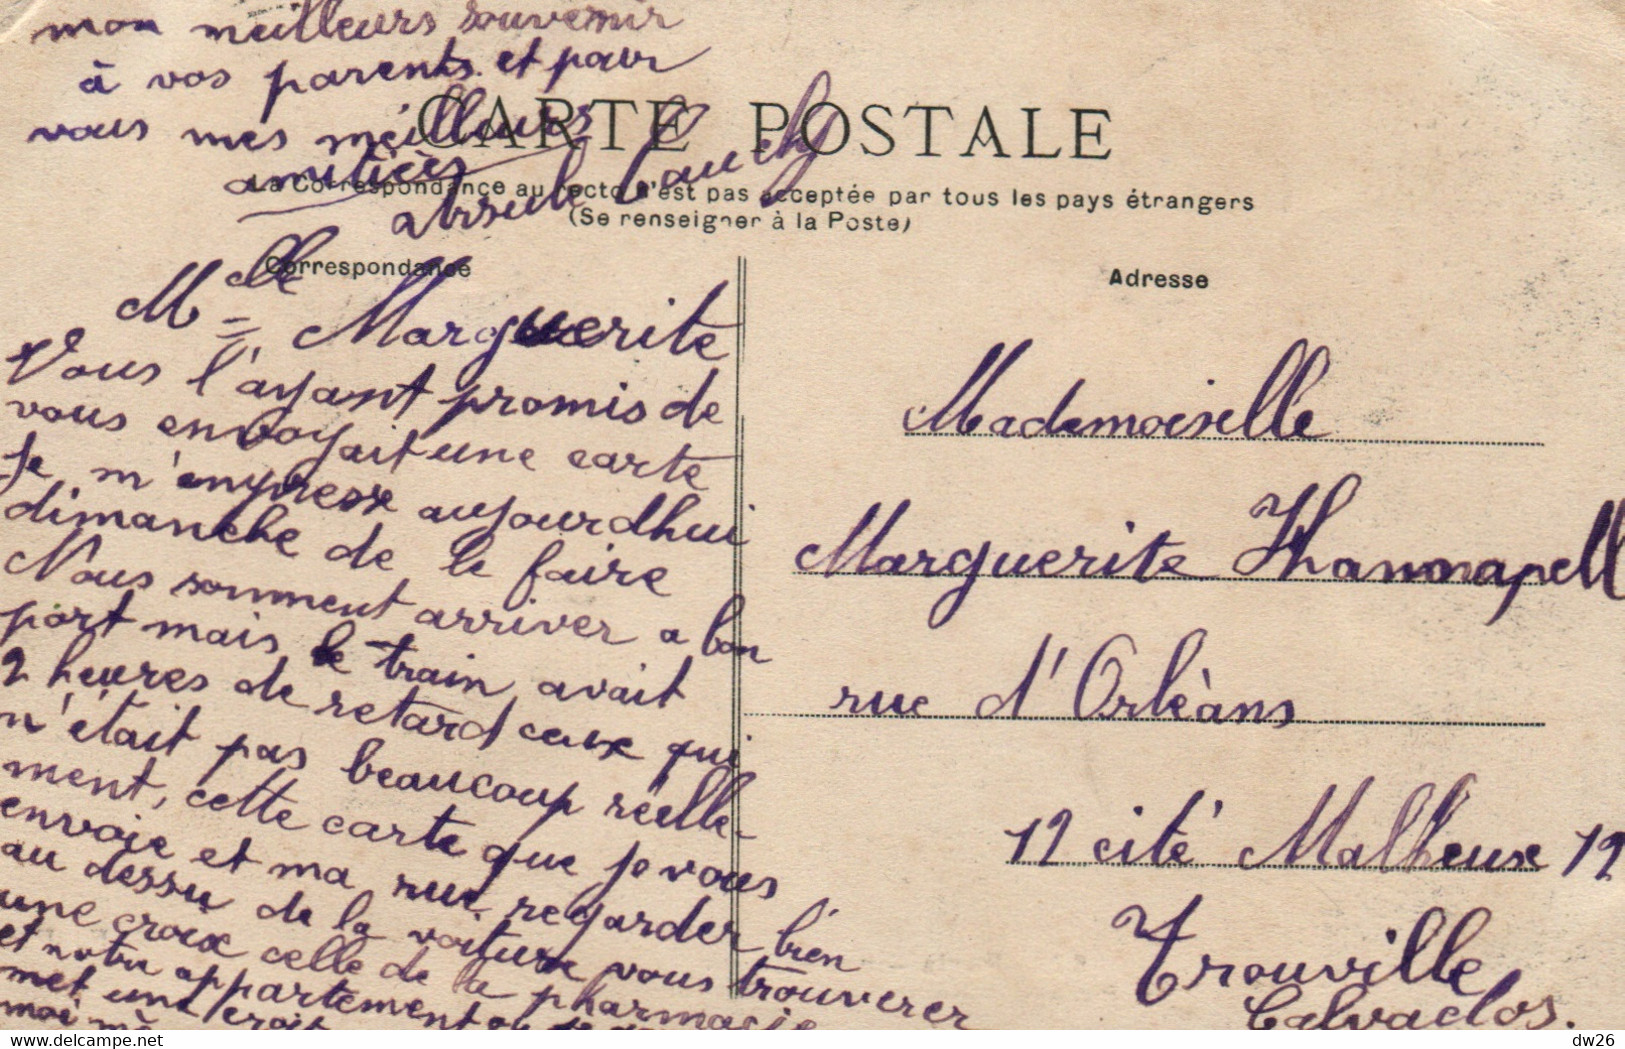 mon meilleurs souvenir
à vos parents et pour
vous mes meilleurs
amitiées
CARTE POSTALE
La Correspondance au recto n'est pas acceptée par tous les pays étrangers
(Se renseigner à la Poste)
Correspondance
Adresse
Mlle Marguerite
Vous l'ayant promis de
vous envoyait une carte
Je m'empresse aujourdhui
dimanche de le faire
Nous somment arriver a bon
port mais le train avait
2 heures de retard ceux qui
n'était pas beaucoup réelle-
ment, cette carte que je vous
envoie et ma rue regarder bien
au dessu de la voiture vous trouverer
une croix celle de la pharmacie
et notre appartement
met une croit
moi
Mademoiselle
Marguerite
rue d'Orlèans
12 cité Malheux 12
Trouville
Calvados.
www.delcampe.net
dw26